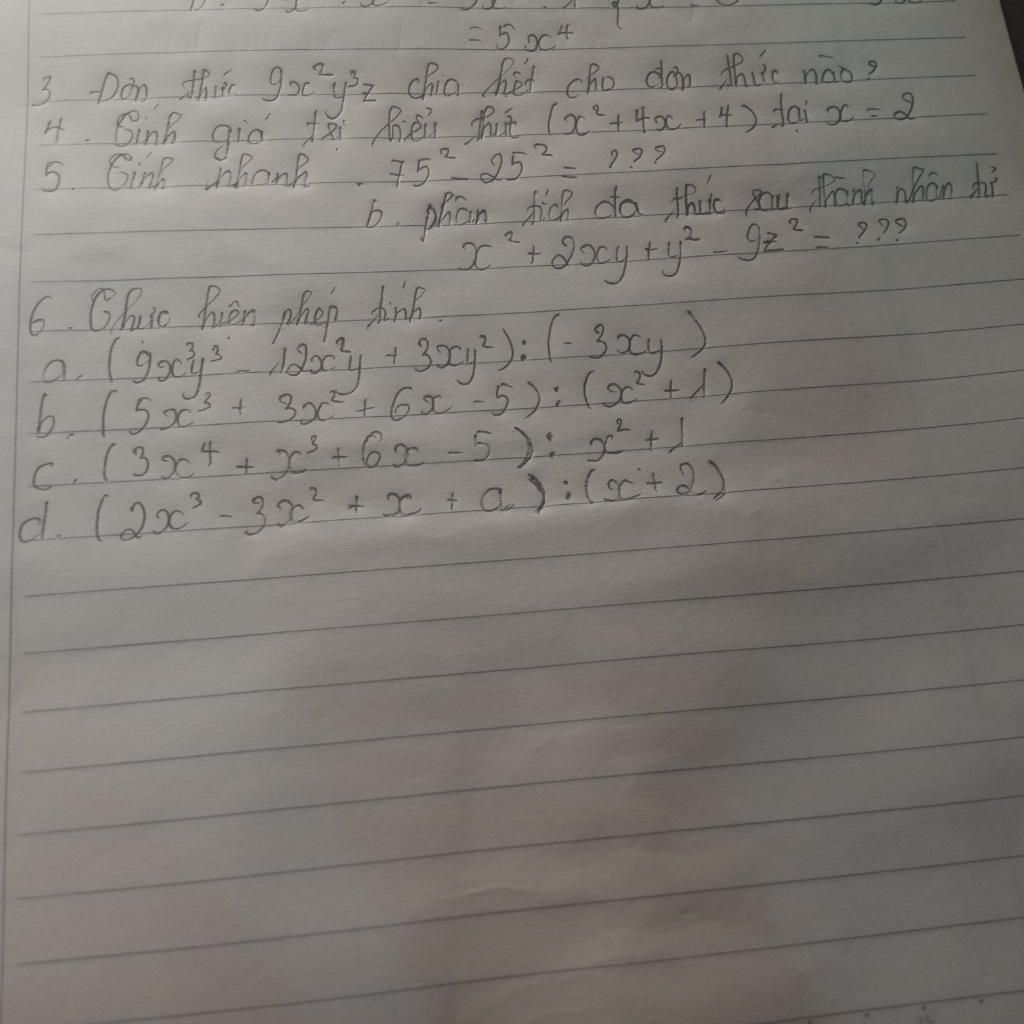 = 5x⁴
3 Đơn thức 9x²y³z chia hết cho đơn thức nào?
4. Tính giá trị biểu thức (x² + 4x + 4) tại x = 2
5. Tính nhanh. 75² - 25² = ???
b. phân tích đa thức sau thành nhân tử
x² + 2xy + y² - 9z² = ???
6. Thực hiện phép tính.
a. (9x³y³ - 12x²y + 3xy²) : (- 3xy)
b. (5x³ + 3x² + 6x - 5) : (x² + 1)
c. (3x⁴ + x³ + 6x - 5) : x² + 1
d. (2x³ - 3x² + x + a) : (x + 2)